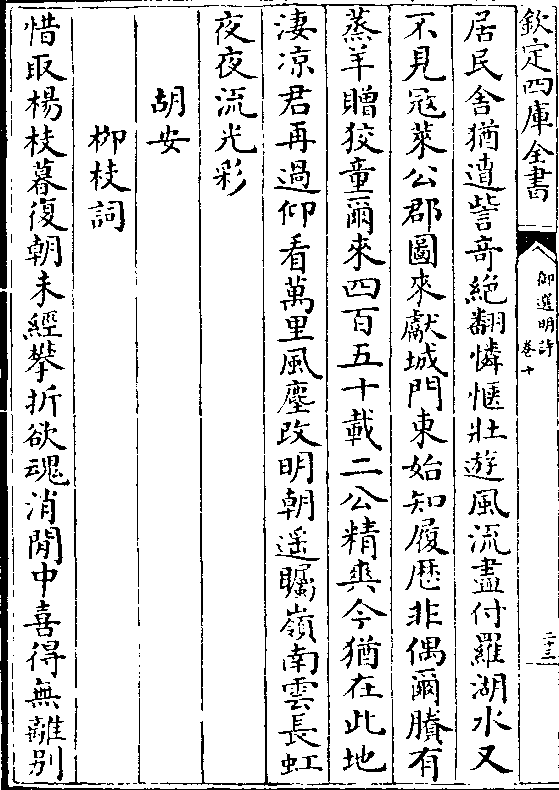 欽定四庫全書
御選明詩
卷十
二十三
居民舍猶遺訾奇絶翻憐愜壯遊風流盡付羅湖水又
不見冦萊公郡圖來獻城門東始知履歴非偶爾賸有
蒸羊贈狡童爾來四百五十載二公精爽今猶在此地
淒凉君再過仰看萬里風塵改明朝遥矚嶺南雲長虹
夜夜流光彩
胡安
柳枝詞
惜取楊枝暮復朝未經攀折欲魂消閒中喜得無離别